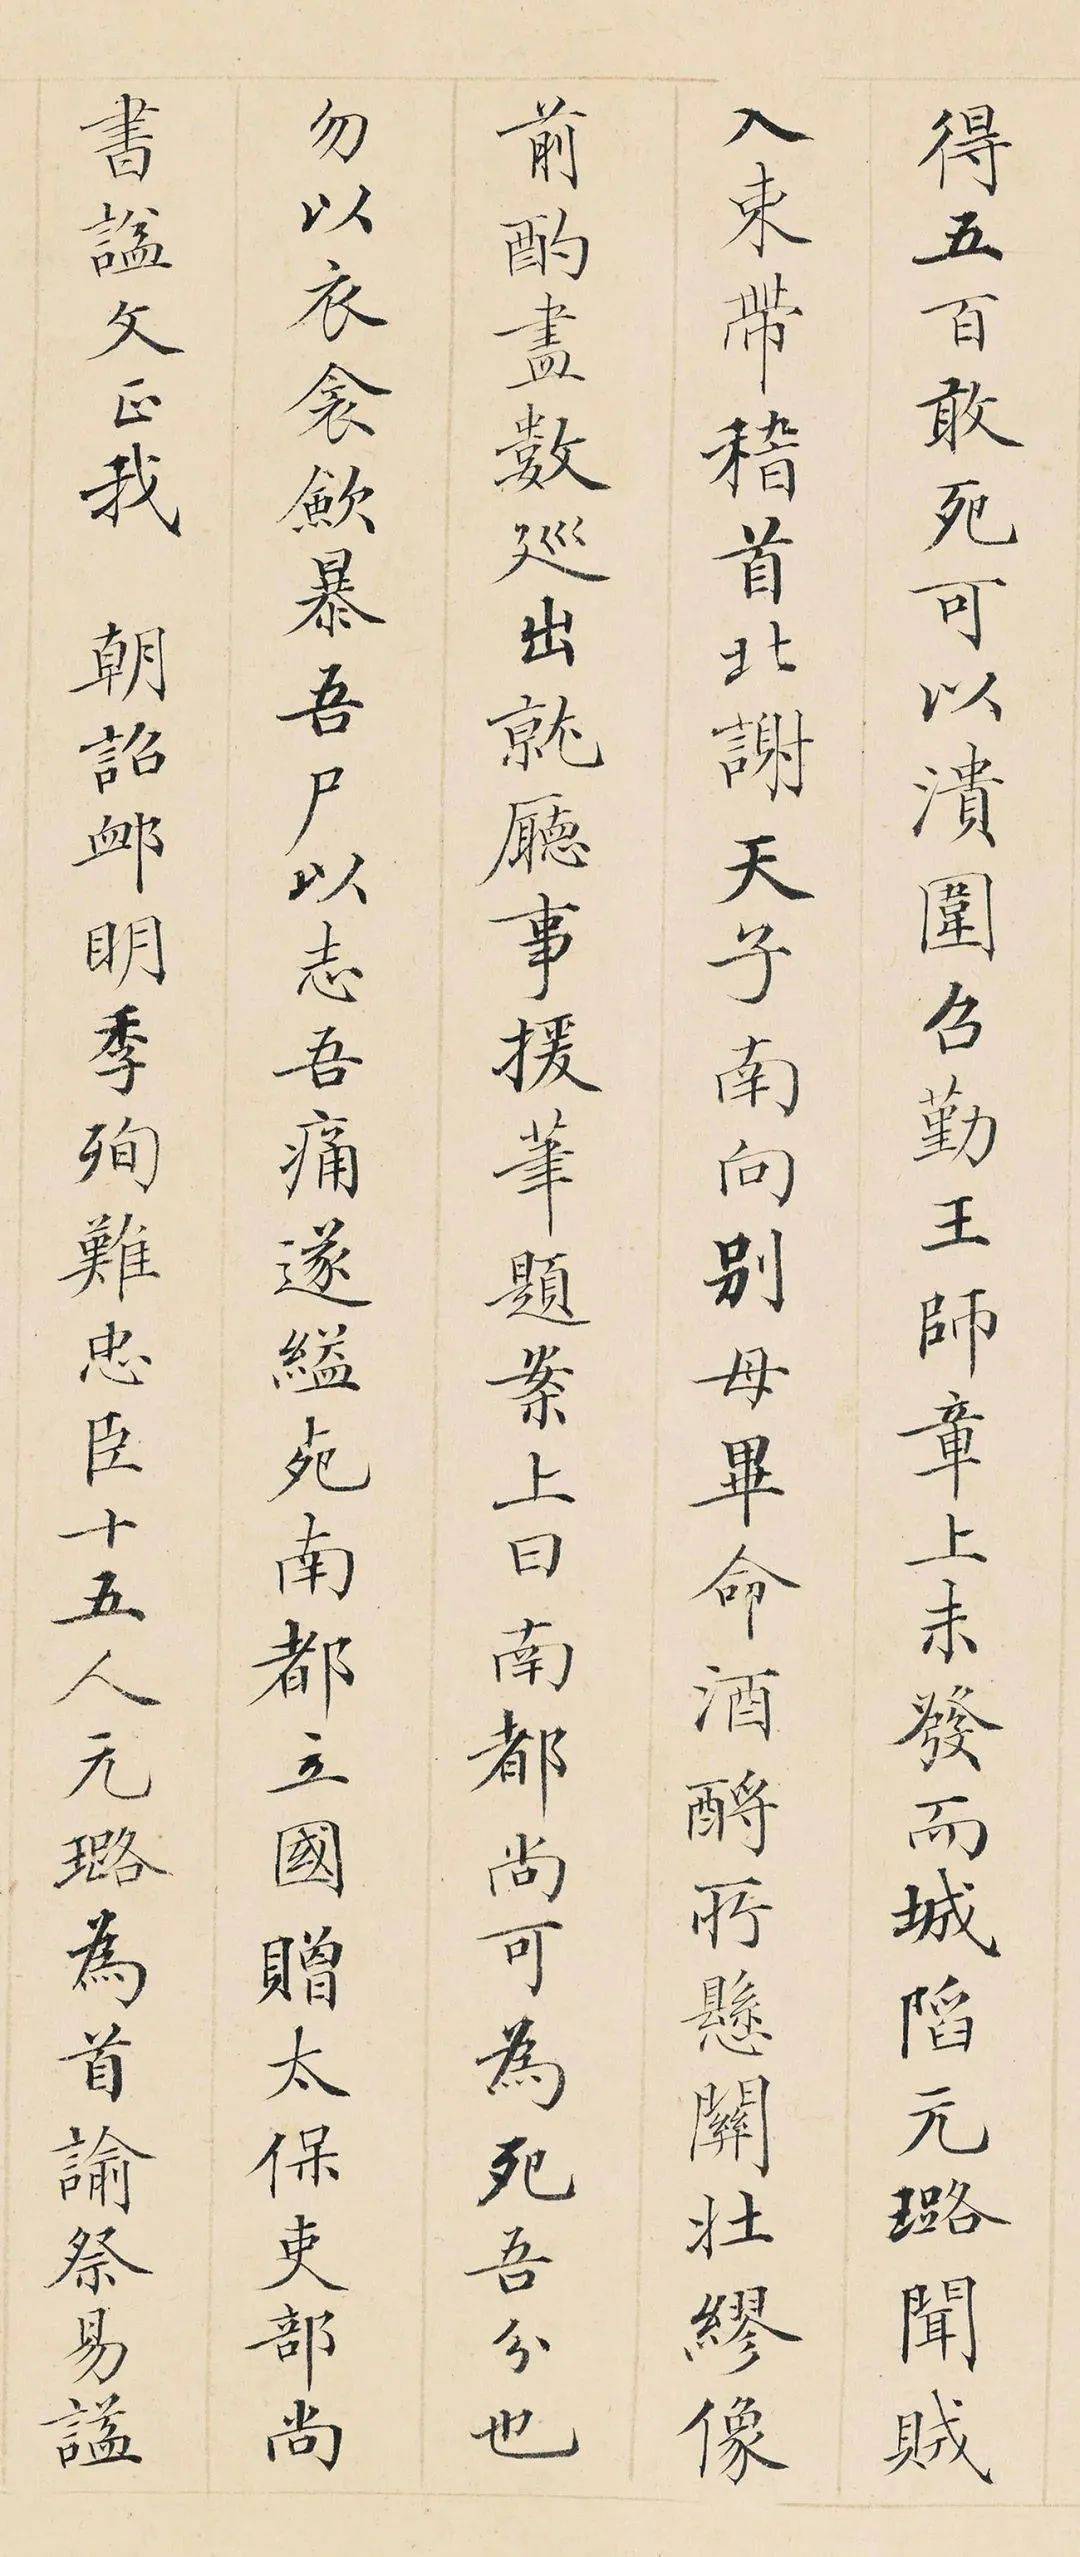 得五百敢死可以潰圍召勤王師章上未發而城陷元璐聞賊
入束帶稽首北謝天子南向別母畢命酒酹所懸關壯繆像
前酌盡數巡出就廳事援筆題案上曰南都尚可為死吾分也
勿以衣衾歛暴吾尸以志吾痛遂縊死南都立國贈太保吏部尚
書諡文正我 朝詔卹明季殉難忠臣十五人元璐為首諭祭易諡